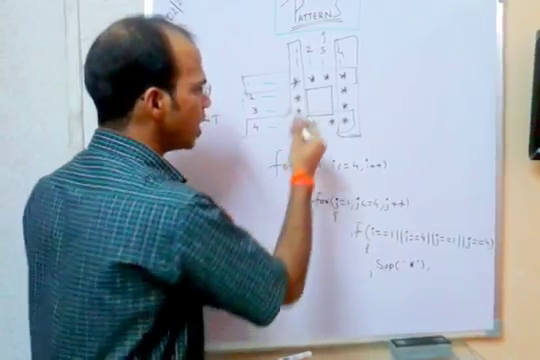 PATTERNS
j
1 2 3 4
* * * *
2 - * *
3 - * *
4 - * *
for( i<=4, i++)
for(j=1, j<=4, j++)
{
if(i==1||i==4||j==1||j==4)
{
Sop("*"),